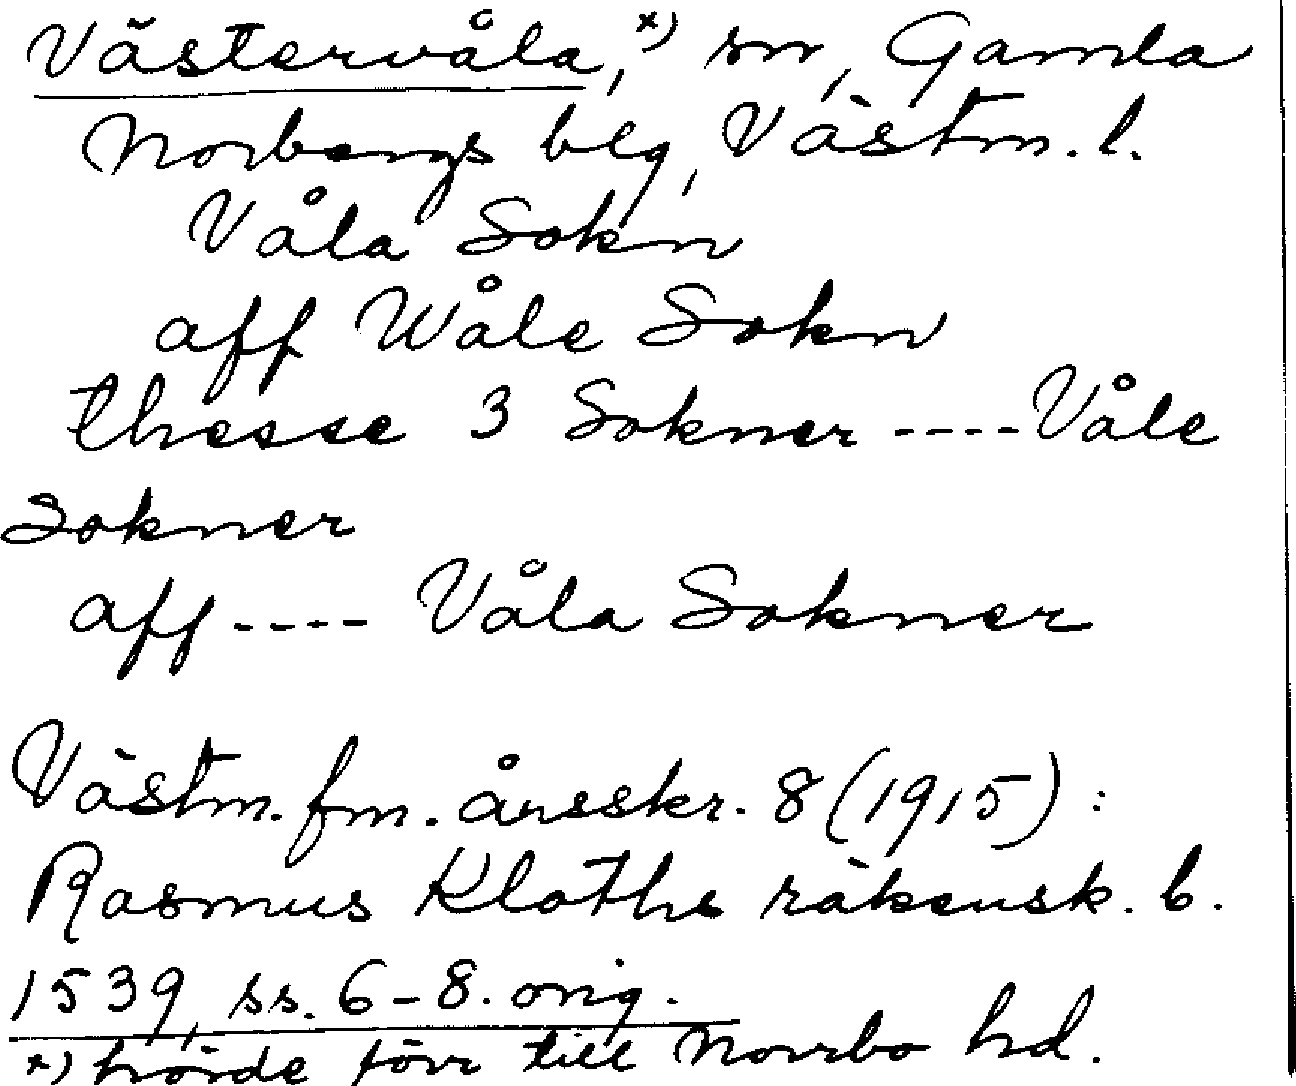 Västervåla,ˣ⁾ sn, Gamla
Norbergs blg, Västm. l.
Våla Sokn
aff Wåle Sokn
thesse 3 Sokner ---- Våle
Sokner
aff ---- Våla Sokner
Västm. fm. årsskr. 8 (1915) :
Rasmus Klothe räkensk. b.
1539, ss. 6-8. orig.
x) hörde förr till Norrbo hd.